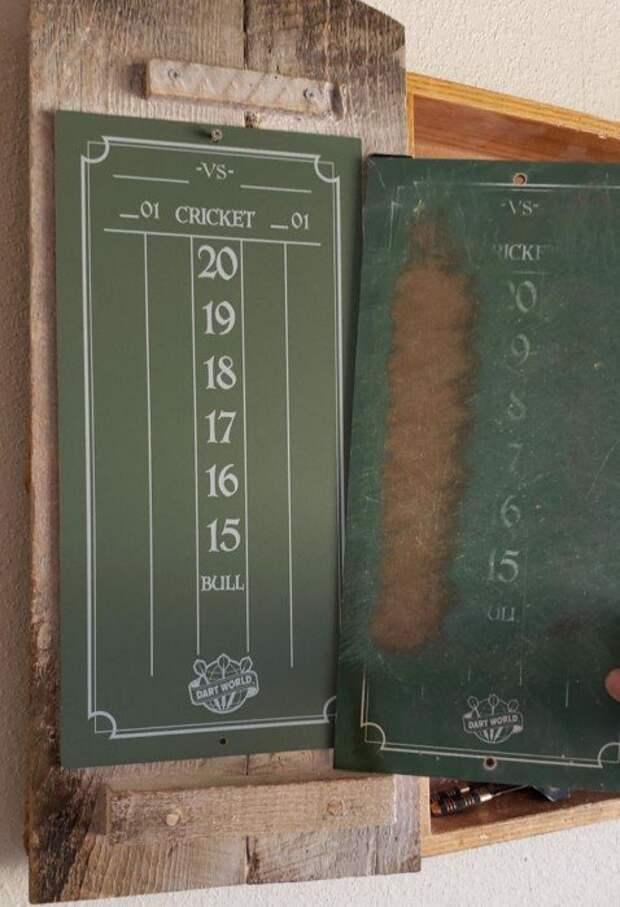 -VS-
_01 CRICKET _01
20
19
18
17
16
15
BULL
DART WORLD
-VS-
RICKE
0
9
8
7
6
15
ULL
DART WORLD